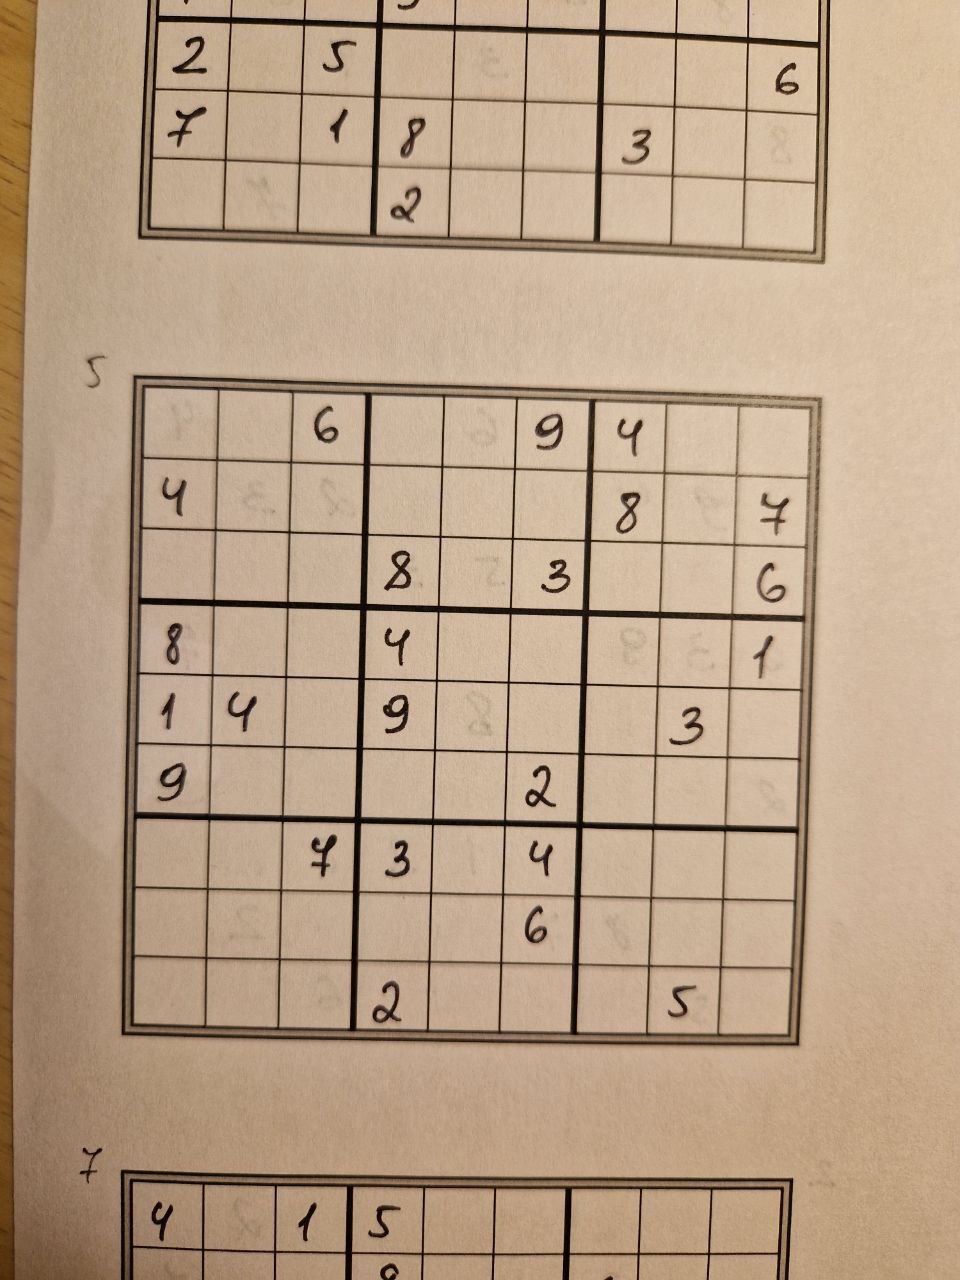 2 5 6
7 1 8 3
2
5
6 9 4
4 8 7
8 3 6
8 4 1
1 4 9 3
9 2
7 3 4
6
2 5
7
4 1 5